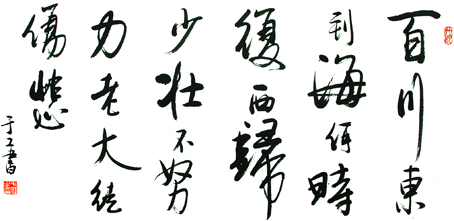 百川東
到海何時
復西歸
少壯不努
力老大徒
傷悲
于工書